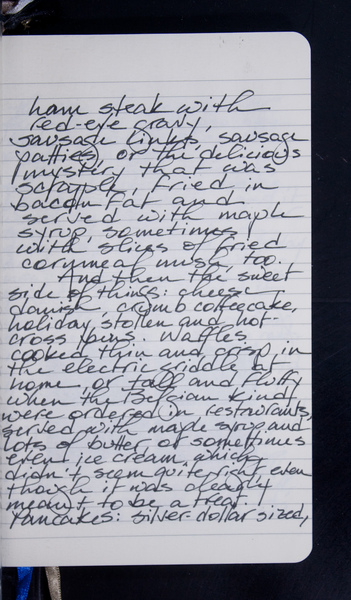 ham steak with
red-eye gravy,
sausage links, sausage
patties, or the delicious
mystery that was
scrapple, fried in
bacon fat and
served with maple
syrup, sometimes
with slices of fried
cornmeal mush, too.
And then the sweet
side of things: cheese
danish, crumb coffeecake,
holiday stollen and hot-
cross buns. Waffles
cooked thin and crisp in
the electric griddle at
home, or tall and fluffy
when the Belgian kind
were ordered in restaurants,
served with maple syrup and
lots of butter or sometimes
even ice cream which
didn't seem quite right even
though it was clearly
meant to be a treat.
Pancakes: silver-dollar sized,